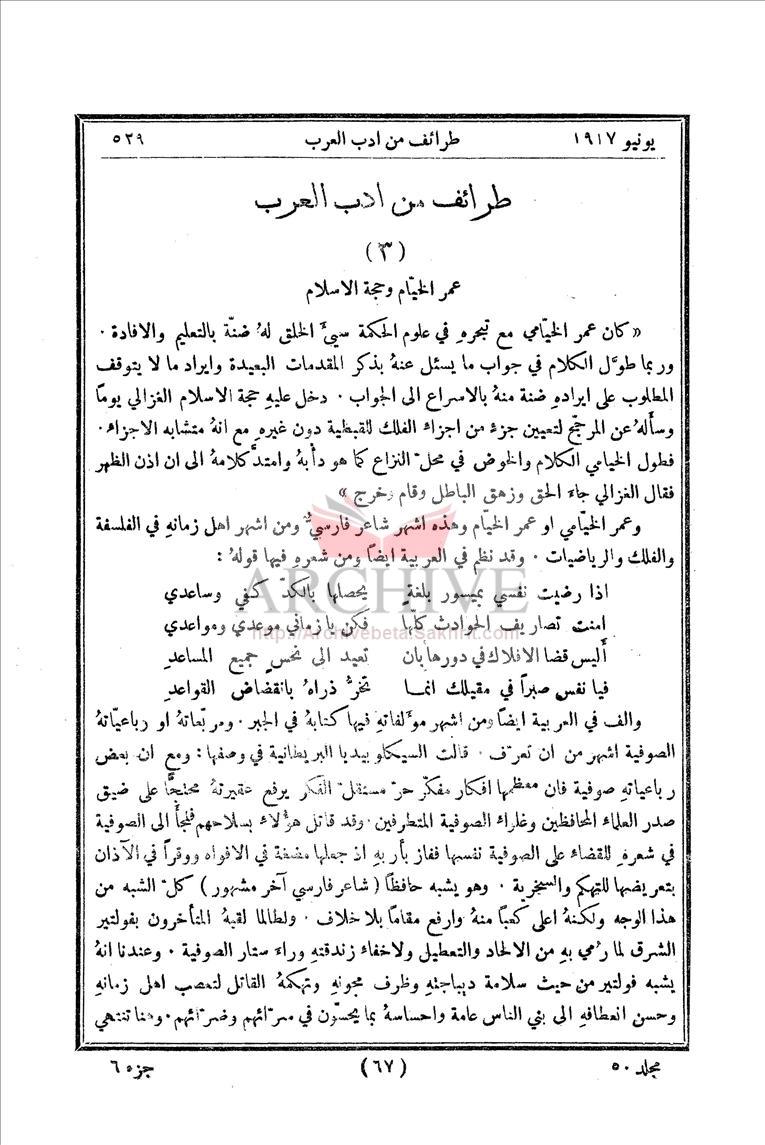 يونيو ١٩١٧ طرائف من ادب العرب ٥٢٩
طرائف من ادب العرب
(٣)
عمر الخيّام وحجة الاسلام
« كان عمر الخيّامي مع تبحرهِ في علوم الحكمة سيّ الخلق لهُ ضنّة بالتعليم والافادة ٠
وربما طوَّل الكلام في جواب ما يسئل عنهُ بذكر المقدمات البعيدة وايراد ما لا يتوقف
المطلوب على ايرادهِ ضنة منهُ بالاسراع الى الجواب ٠ دخل عليهِ حجة الاسلام الغزالي يوماً
وسألهُ عن المرجّح لتعيين جزءٍ من اجزاء الفلك للقبطية دون غيرهِ مع انهُ متشابه الاجزاء ٠
فطول الخيامي الكلام والخوض في محل النزاع كما هو دأبهُ وامتدَّ كلامهُ الى ان اذن الظهر
فقال الغزالي جاء الحق وزهق الباطل وقام وخرج »
وعمر الخيّامي او عمر الخيّام وهذه اشهر شاعر فارسيٌّ ومن اشهر اهل زمانهِ في الفلسفة
والفلك والرياضيات ٠ وقد نظم في العربية ايضاً ومن شعرهِ فيها قولهُ :
اذا رضيت نفسي بميسور بلغةٍ يحصلها بالكد كفي وساعدي
امنت تصاريف الحوادث كلها فكن يا زماني موعدي ومواعدي
أَليس قضا الافلاك في دورها بان تعيد الى نحسٍ جميع المساعدِ
فيا نفس صبراً في مقيلك انما تخرُّ ذراه بانقضاض القواعدِ
والف في العربية ايضاً ومن اشهر مؤلفاتهِ فيها كتابهُ في الجبر ٠ ومربّعاتهُ او رباعيّاتهُ
الصوفية اشهر من ان تعرَّف ٠ قالت السيكلوبيديا البريطانية في وصفها : ومع ان بعض
رباعياتهِ صوفية فان معظمها افكار مفكّر حرّ مستقلّ الفكر يرفع عقيرتهُ محتجّاً على ضيق
صدر العلماء المحافظين وغلواء الصوفية المتطرفين ٠ وقد قاتل هؤلاء بسلاحهم فلجأ الى الصوفية
في شعرهِ للقضاء على الصوفية نفسها ففاز بأربهِ اذ جعلها مضغة في الافواه ووقراً في الآذان
بتعريضها للتهكم والسخرية ٠ وهو يشبه حافظاً ( شاعر فارسي آخر مشهور ) كلّ الشبه من
هذا الوجه ولكنهُ اعلى كعباً منهُ وارفع مقاماً بلا خلاف ٠ ولطالما لقبهُ المتأخرون بفولتير
الشرق لما رُمي بهِ من الالحاد والتعطيل ولاخفاء زندقتهِ وراء ستار الصوفية ٠ وعندنا انهُ
يشبه فولتير من حيث سلامة ديباجتهِ وظرف مجونهِ وتهكمهُ القاتل لتعصب اهل زمانهِ
وحسن انعطافهِ الى بني الناس عامة واحساسهُ بما يحسّون في مسرّاتهم وضرّائهم ٠ وهنا تنتهي
مجلد ٥٠ (٦٧) جزء ٦
ARCHIVE
http://Archivebeta.Sakhrit.com